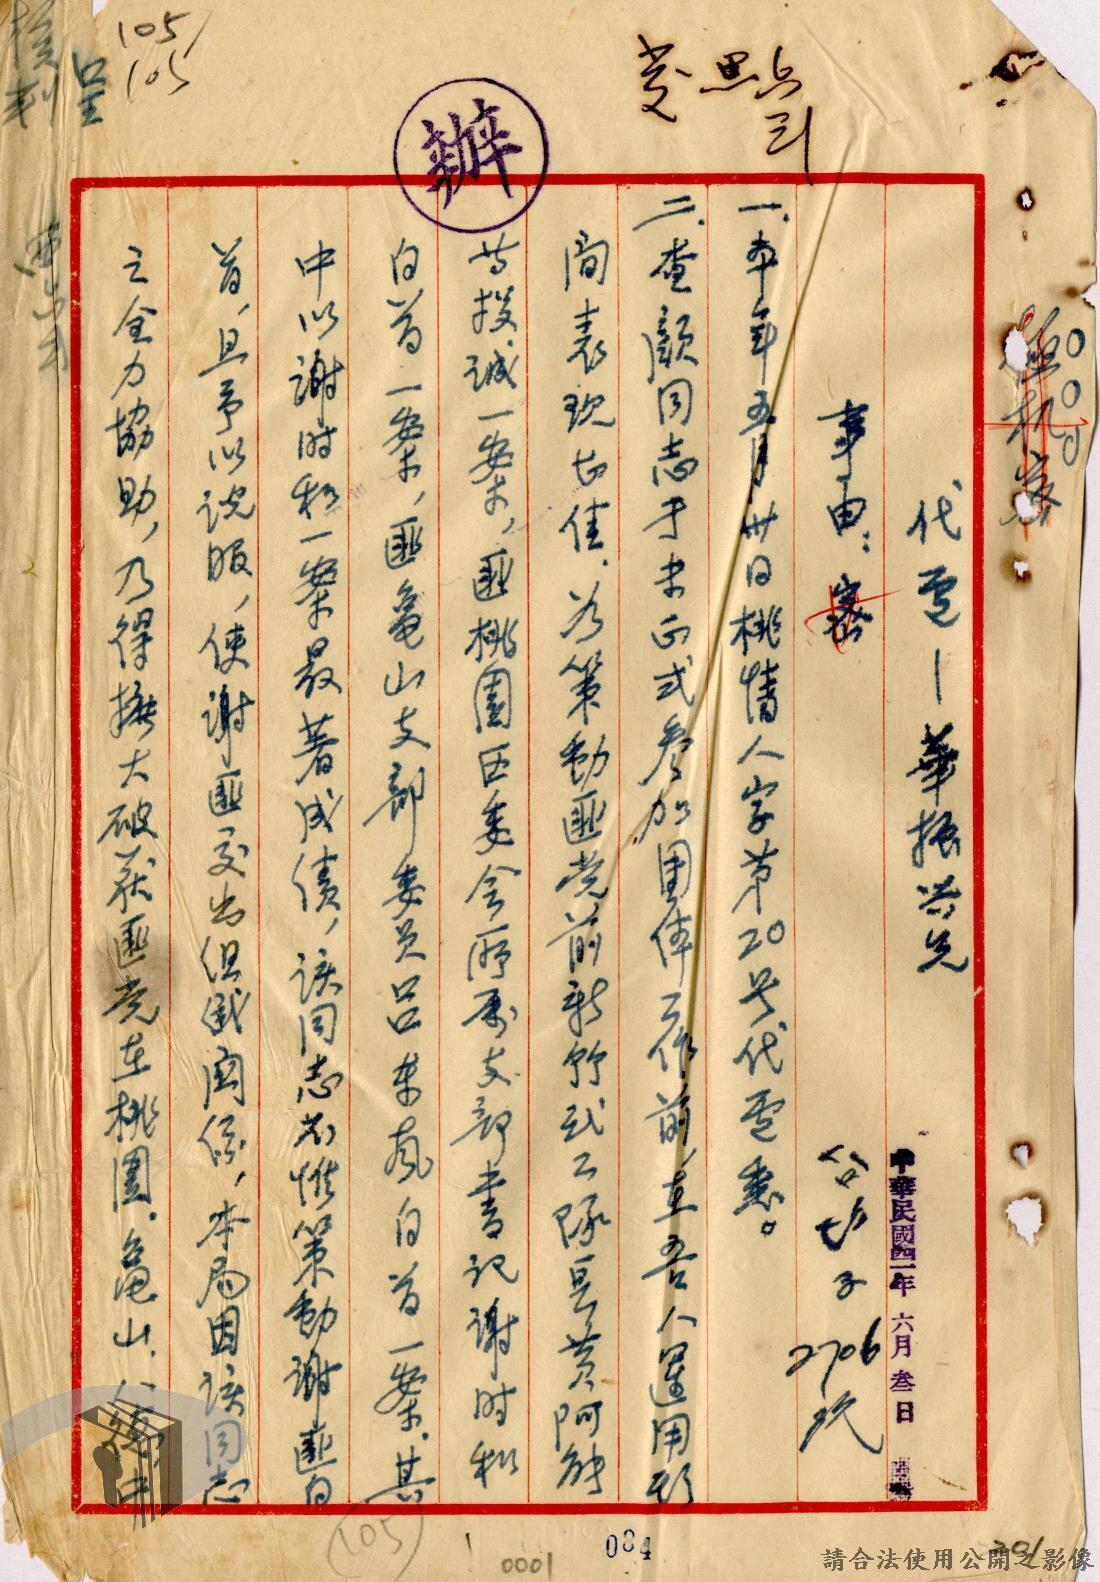 105
105
呈
麦點
辦
極机密
代電－華振洪先
中華民國四一年 六月 叁日
2706
事由：密
一.本年五月卅日桃情人字第20号代電悉。
二.查顏同志于未正式参加團体工作前,在吾人運用於
間表現甚佳.為策動匪党前新竹武工隊員黄阿能
等投誠一案,匪桃園区委会所属支部書記謝时和
自首一案,匪龜山支部委員呂某 自首一案.其
中以謝时和一案最著成績,該同志不惟策動謝匪自
首,且予以說服,使謝匪交出组織関係,本局因該同志
之全力協助,乃得擴大破获匪党在桃園.龜山.
(105)
084
0001
201
請合法使用公開之影像